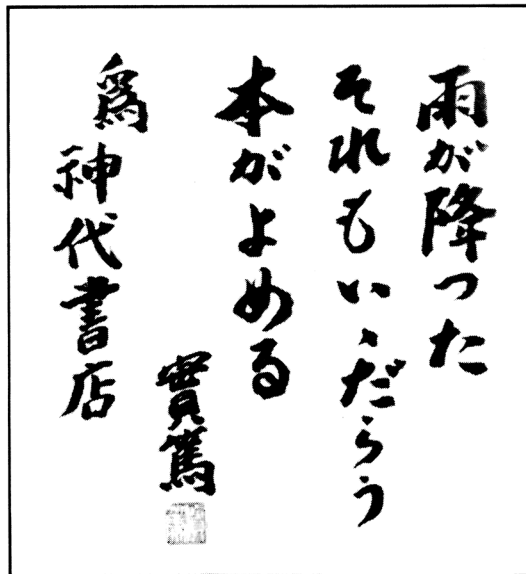 雨が降つた
それもいゝだらう
本がよめる
實篤
爲神代書店